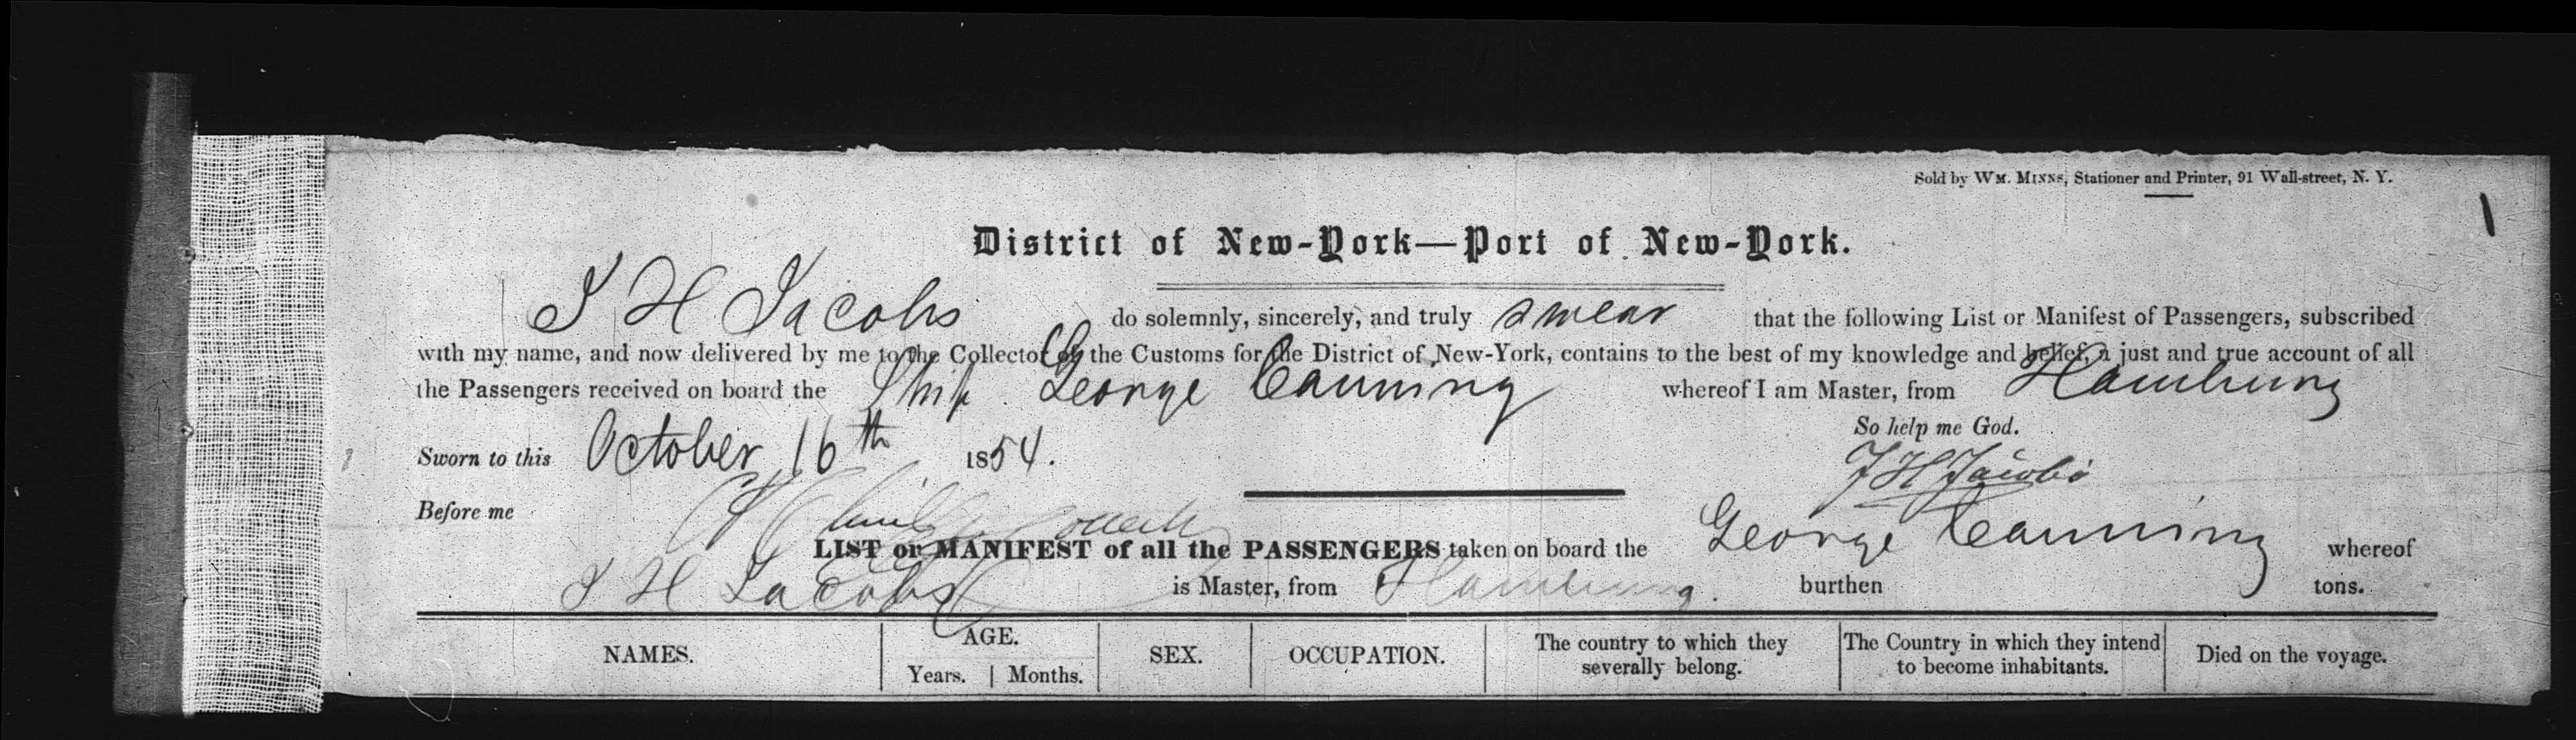 Sold by WM. MINNS, Stationer and Printer, 91 Wall-street, N. Y.
District of New-York—Port of New-York.
J H Jacobs do solemnly, sincerely, and truly swear that the following List or Manifest of Passengers, subscribed
with my name, and now delivered by me to the Collector of the Customs for the District of New-York, contains to the best of my knowledge and belief, a just and true account of all
the Passengers received on board the Ship George Canning whereof I am Master, from Hamburg
So help me God.
Sworn to this October 16th 1854.
J H Jacobs
Before me
LIST or MANIFEST of all the PASSENGERS taken on board the George Canning whereof
J H Jacobs is Master, from Hamburg. burthen tons.
NAMES. AGE. Years. Months. SEX. OCCUPATION. The country to which they severally belong. The Country in which they intend to become inhabitants. Died on the voyage.